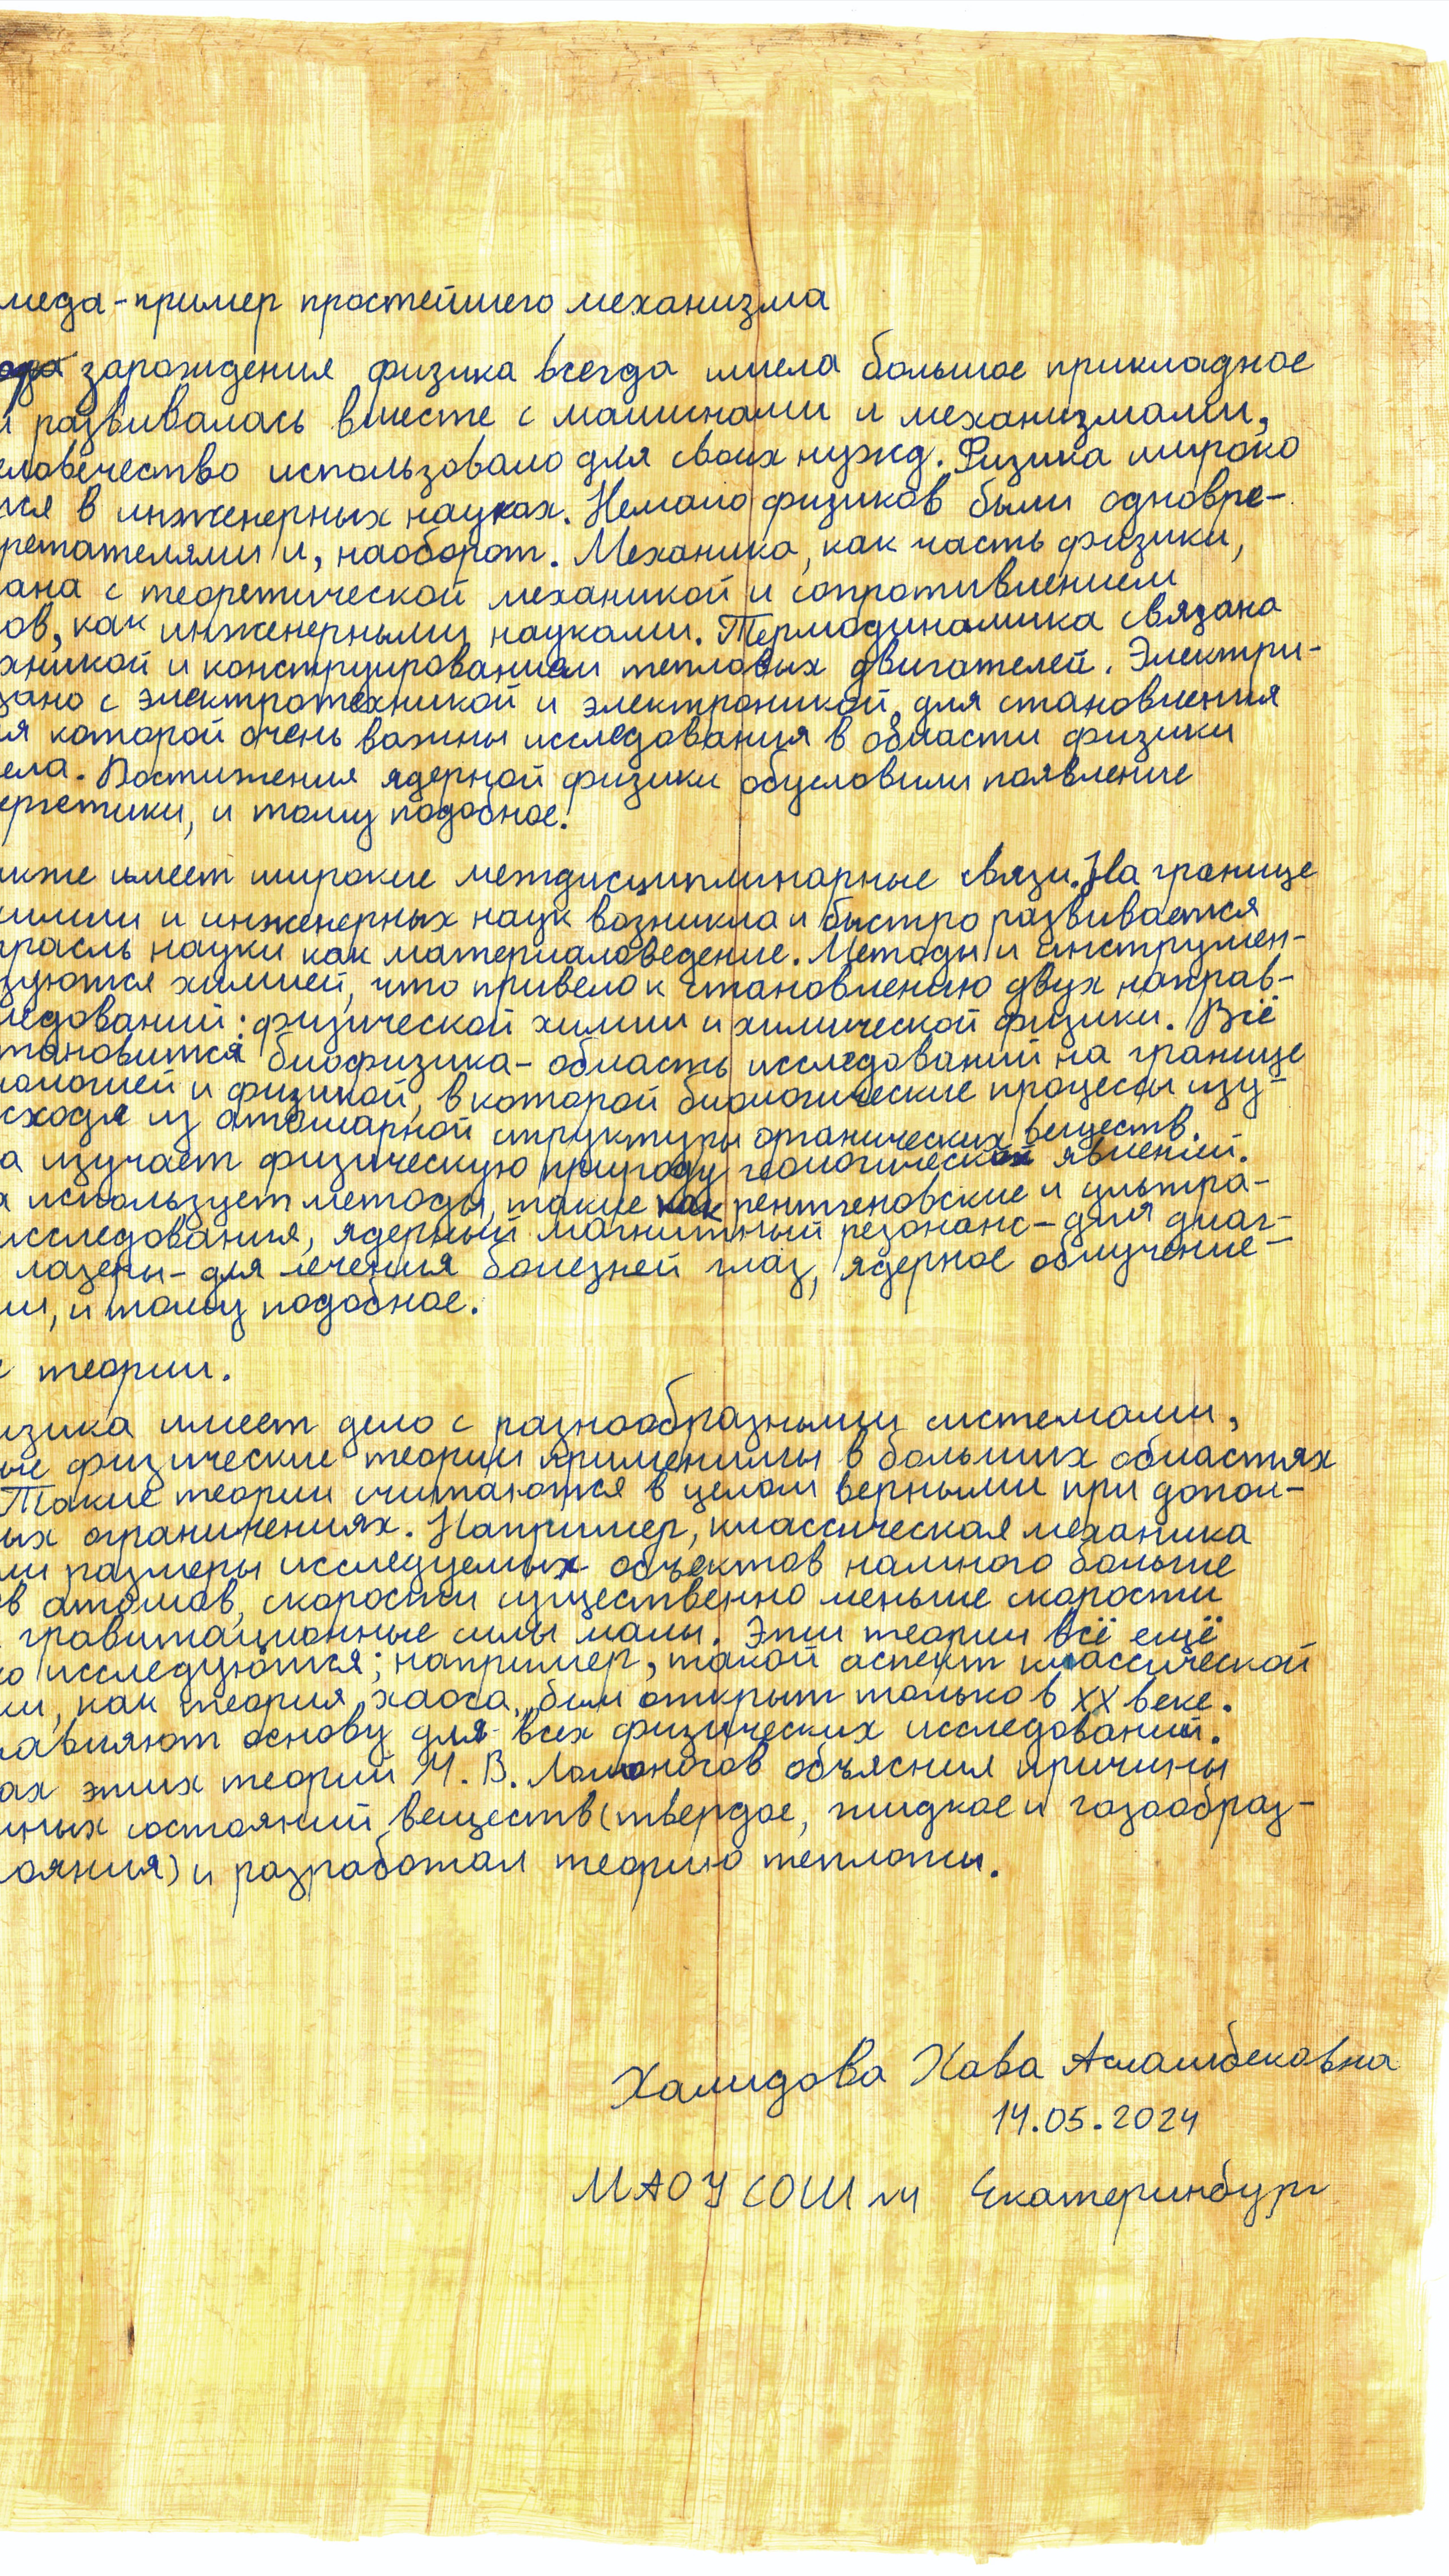 меда - пример простейшего механизма
зарождения физика всегда имела большое прикладное
и развивалась вместе с машинами и механизмами,
еловечество использовало для своих нужд. Физика широко
тся в инженерных науках. Немало физиков были одновре-
ретателями и, наоборот. Механика, как часть физики,
ана с теоретической механикой и сопротивлением
ов, как инженерными науками. Термодинамика связана
хникой и конструированием тепловых двигателей. Электри-
зано с электротехникой и электроникой, для становления
ия которой очень важны исследования в области физики
ела. Достижения ядерной физики обусловили появление
ергетики, и тому подобное.
кже имеет широкие междисциплинарные связи. На границе
химии и инженерных наук возникла и быстро развивается
трасль науки как материаловедение. Методы и инструмен-
зуются химией, что привело к становлению двух направ-
ледований: физической химии и химической физики. Всё
тановится биофизика - область исследований на границе
иологией и физикой, в которой биологические процессы изу-
сходя из атомарной структуры органических веществ.
а изучает физическую природу геологических явлений.
а использует методы, такие как рентгеновские и ультра-
исследования, ядерный магнитный резонанс - для диаг-
лазеры - для лечения болезней глаз, ядерное облучение -
ии, и тому подобное.
е теории.
изика имеет дело с разнообразными системами,
ые физические теории применимы в больших областях
Такие теории считаются в целом верными при допол-
ых ограничениях. Например, классическая механика
ли размеры исследуемых объектов намного больше
ов атомов, скорости существенно меньше скорости
гравитационные силы малы. Эти теории всё ещё
о исследуются; например, такой аспект классической
ки, как теория хаоса, был открыт только в XX веке.
авляют основу для всех физических исследований.
ах этих теорий М. В. Ломоносов объяснил причины
тных состояний веществ (твердое, жидкое и газообраз-
ояния) и разработал теорию теплоты.
Халидова Хава Асламбековна
14.05.2024
МАОУ СОШ Екатеринбург